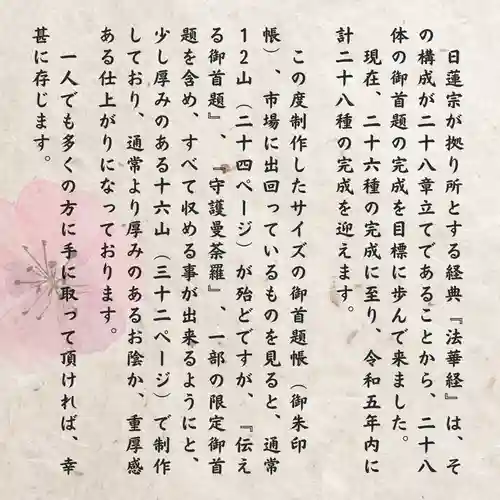 日蓮宗が拠り所とする経典『法華経』は、そ
の構成が二十八章立てであることから、二十八
体の御首題の完成を目標に歩んで来ました。
現在、二十六種の完成に至り、令和五年内に
計二十八種の完成を迎えます。
この度制作したサイズの御首題帳（御朱印
帳）、市場に出回っているものを見ると、通常
12山（二十四ページ）が殆どですが、『伝え
る御首題』、『守護曼荼羅』、一部の限定御首
題を含め、すべて収める事が出来るようにと、
少し厚みのある十六山（三十二ページ）で制作
しており、通常より厚みのあるお陰か、重厚感
ある仕上がりになっております。
一人でも多くの方に手に取って頂ければ、幸
甚に存じます。